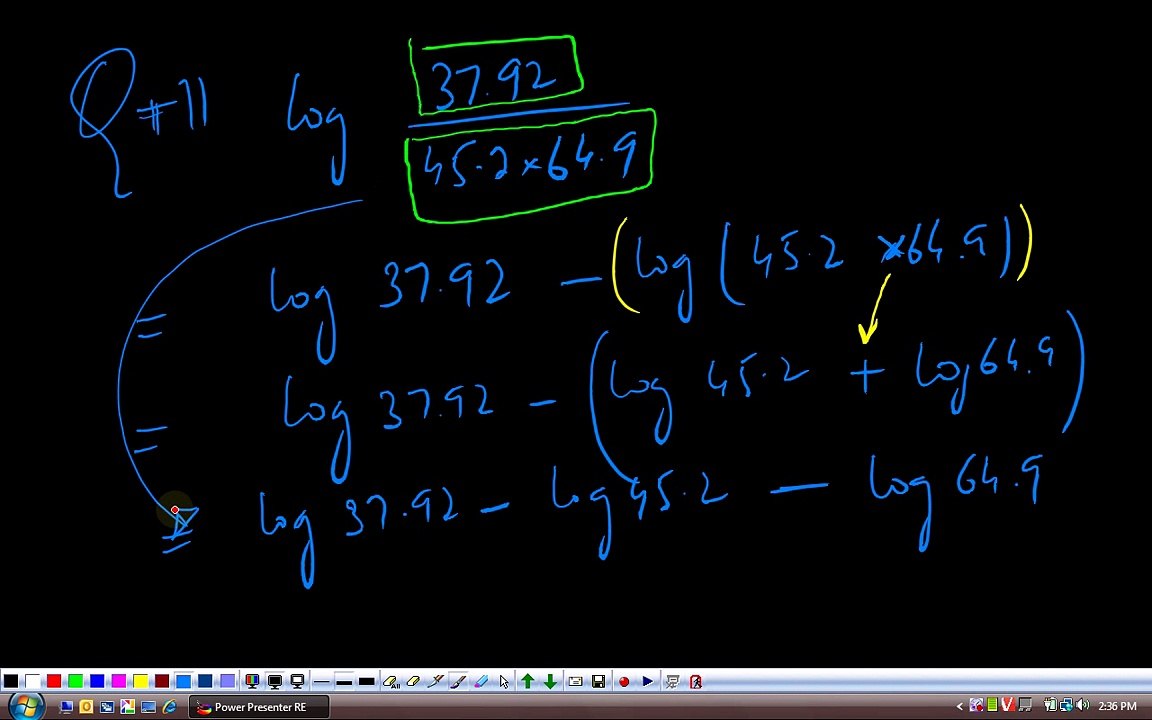 Q#11 log 37.92
45.2×64.9
= log 37.92 - (log (45.2 ×64.9))
= log 37.92 - (log 45.2 + log 64.9)
= log 37.92 - log 45.2 - log 64.9
Power Presenter RE
2:36 PM